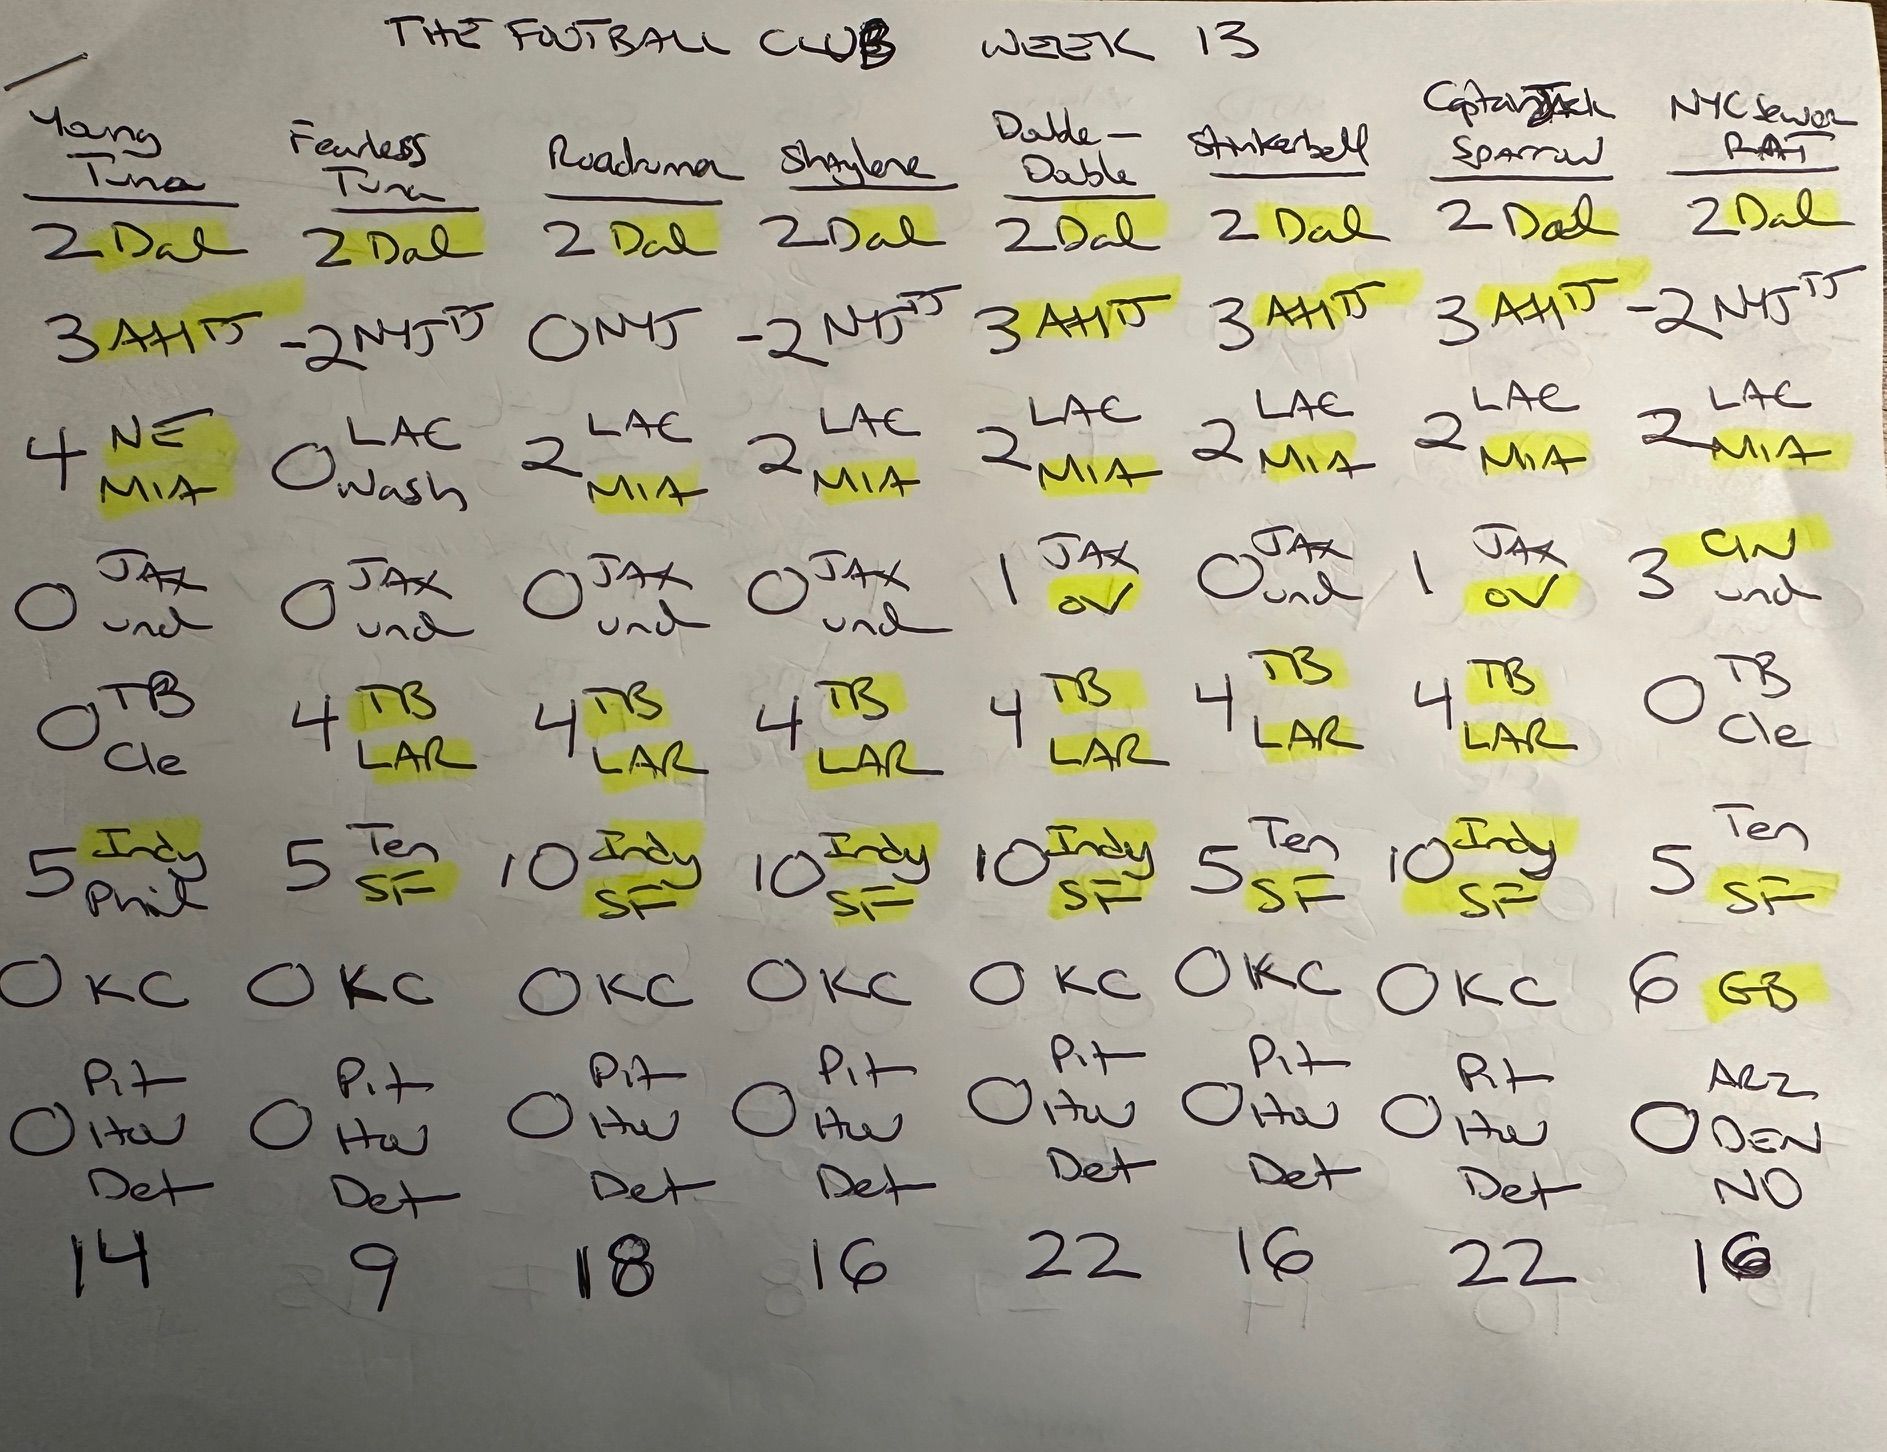 THE FOOTBALL CLUB WEEK 13
Young Tuna Fearless Tuna Roadrunner Shaylene Doble-Doble Stinkerbell Captain Jack SPARROW NYC Sewer RAT
2 Dal 2 Dal 2 Dal 2 Dal 2 Dal 2 Dal 2 Dal 2 Dal
3 Atl TJ -2 NYJ TJ 0 NYJ -2 NYJ TJ 3 Atl TJ 3 Atl TJ 3 Atl TJ -2 NYJ TJ
NE LAC LAC LAC LAC LAC LAC LAC
4 0 2 2 2 2 2 2
MIA Wash MIA MIA MIA MIA MIA MIA
JAX JAX JAX JAX JAX JAX JAX CIN
0 0 0 0 1 0 1 3
und und und und OV und OV und
TB TB TB TB TB TB TB TB
0 4 4 4 4 4 4 0
Cle LAR LAR LAR LAR LAR LAR Cle
Indy Ten Indy Indy Indy Ten Indy Ten
5 5 10 10 10 5 10 5
Phil SF SF SF SF SF SF SF
0 KC 0 KC 0 KC 0 KC 0 KC 0 KC 0 KC 6 GB
Pit Pit Pit Pit Pit Pit Pit ARZ
0 Hou 0 Hou 0 Hou 0 Hou 0 Hou 0 Hou 0 Hou 0 DEN
Det Det Det Det Det Det Det NO
14 9 18 16 22 16 22 16